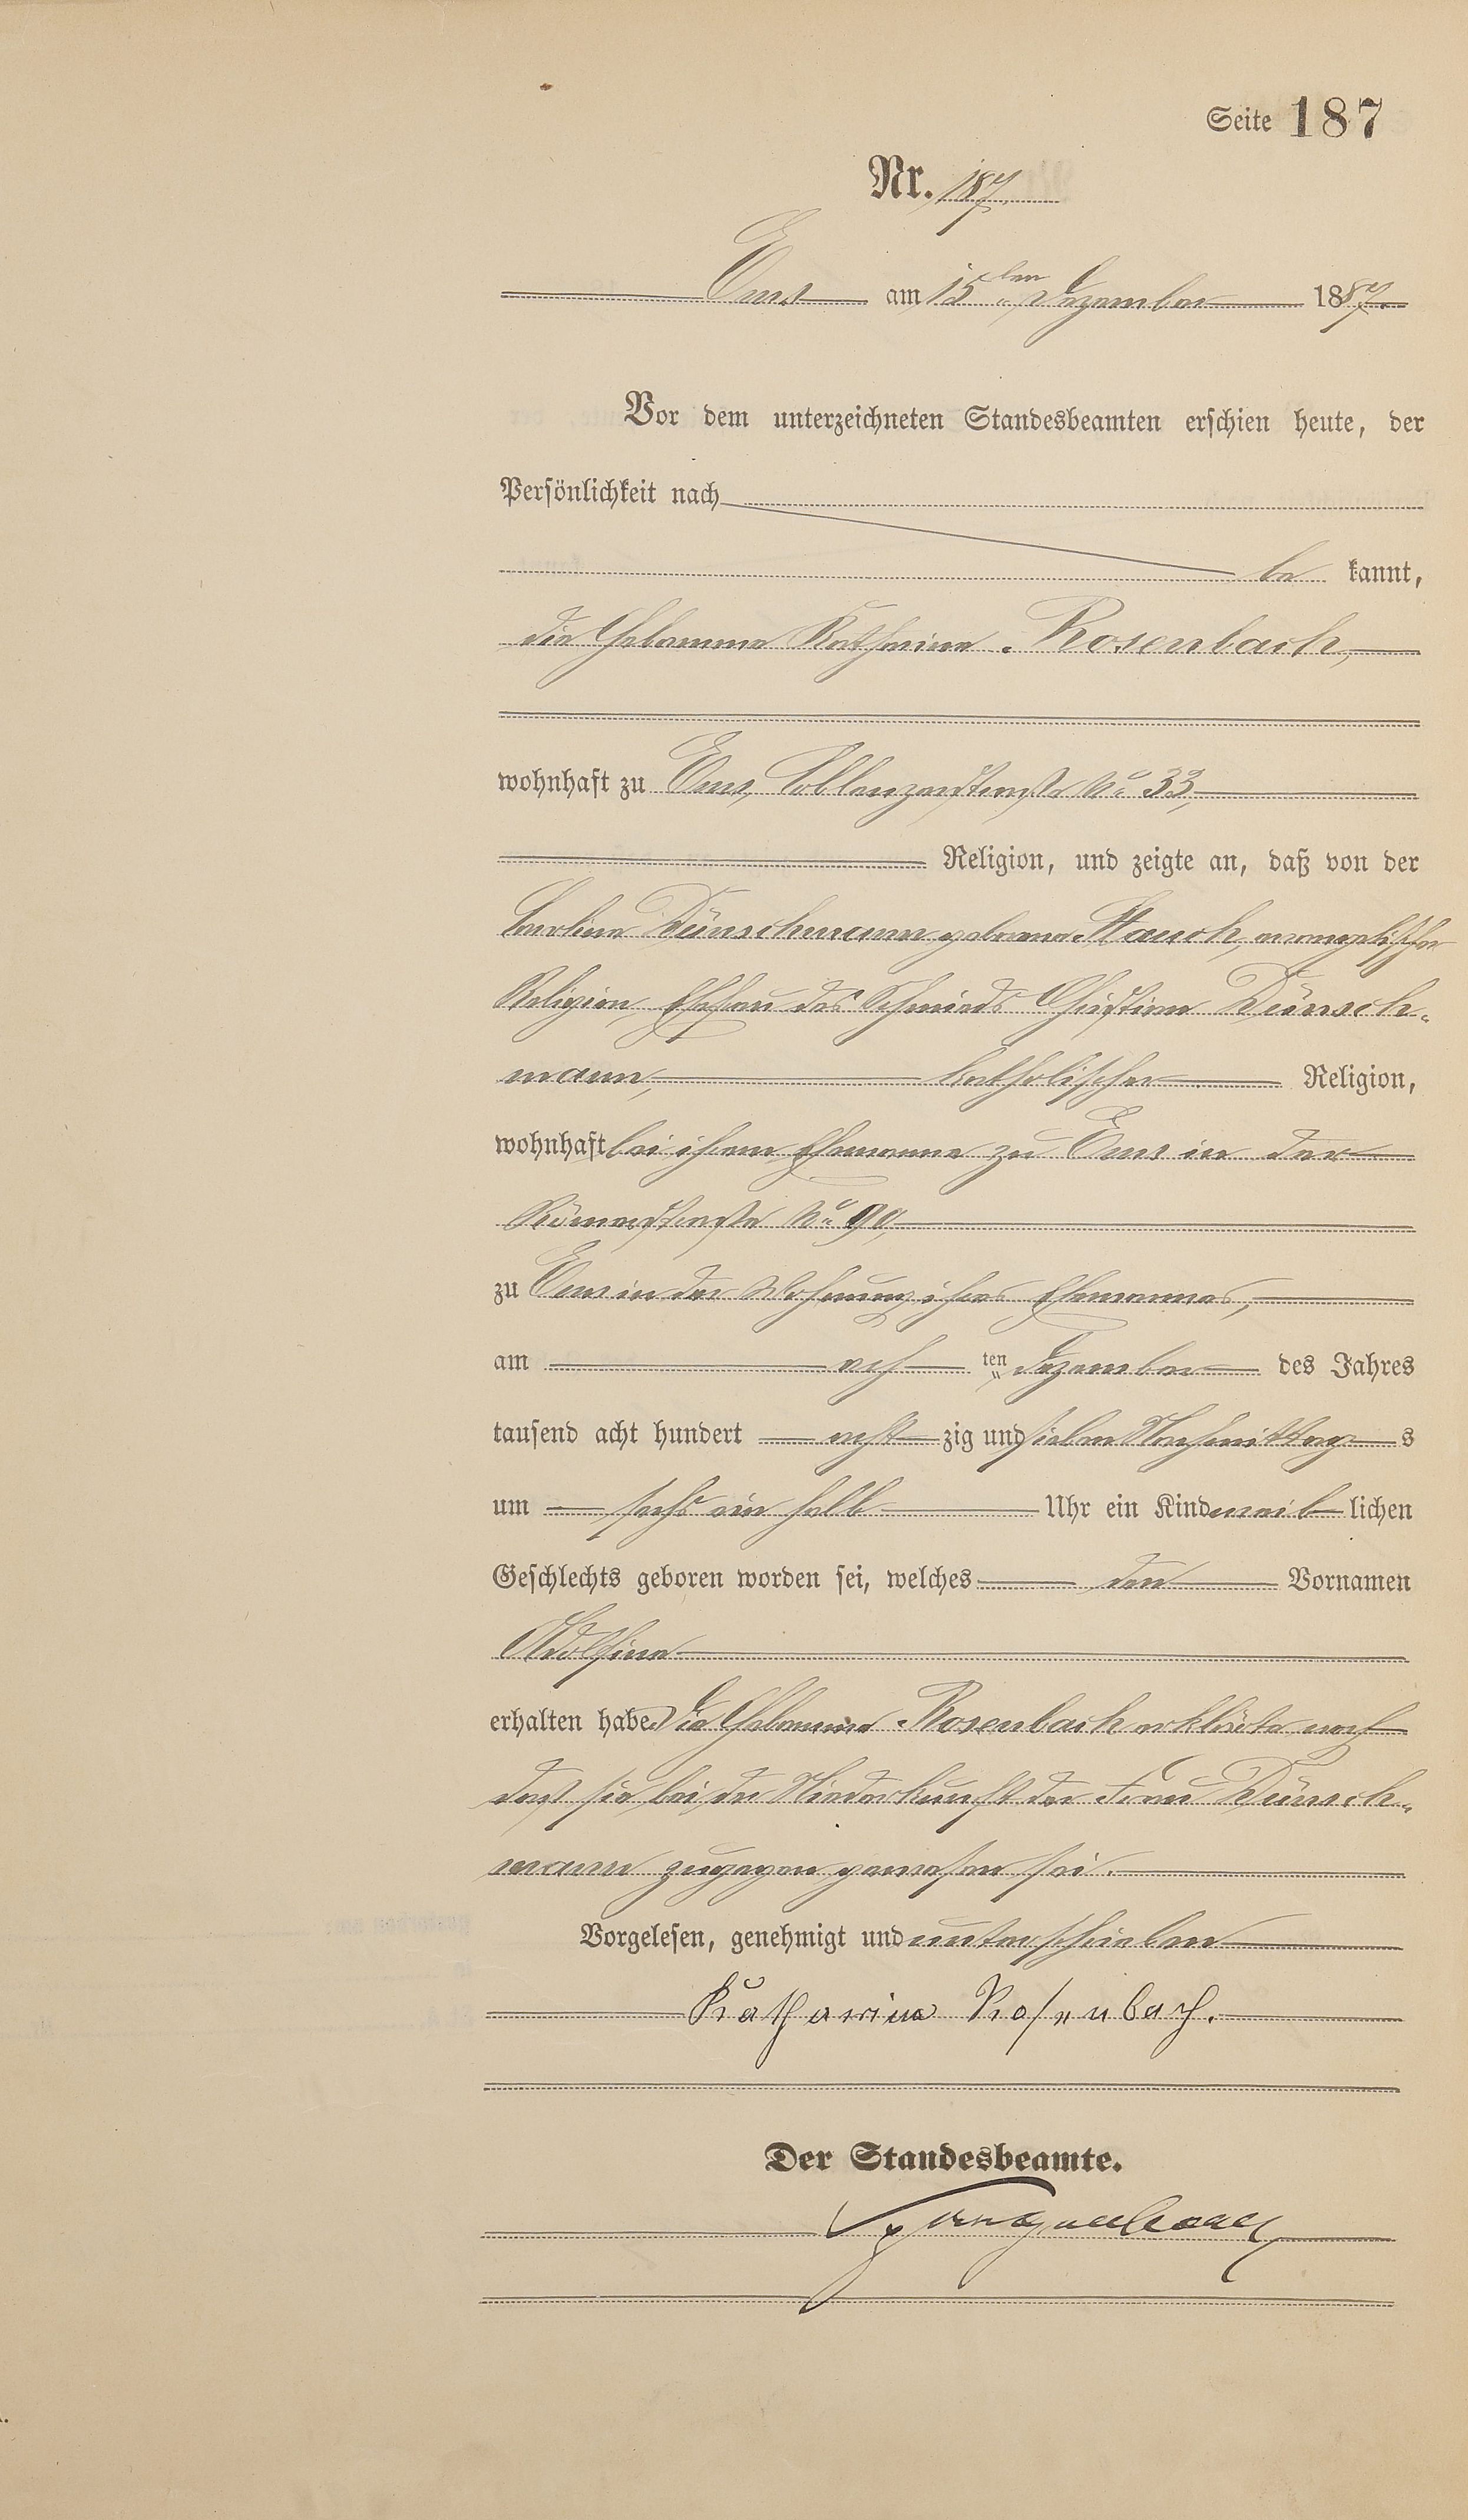 Seite 187
Nr. 187.
Ems am 15ten Dezember 1887.
Vor dem unterzeichneten Standesbeamten erschien heute, der
Persönlichkeit nach
be kannt,
die Hebamme Katharina Rosenbach,
wohnhaft zu Ems, Coblenzerstraße No 33,
Religion, und zeigte an, daß von der
Karoline Dünschmann geborene Stauch, evangelischer
Religion, Ehefrau des Schmieds Christian Dünsch-
mann, katholischer Religion,
wohnhaft bei ihrem Ehemanne zu Ems in der
Römerstraße No 90,
zu Ems in der Wohnung ihres Ehemannes,
am ach ten Dezember des Jahres
tausend acht hundert acht zig und sieben Nachmittag s
um sechs ein halb Uhr ein Kind weib lichen
Geschlechts geboren worden sei, welches den Vornamen
Adolfine
erhalten habe. Die Hebamme Rosenbach erklärte noch
daß sie bei der Niederkunft der Frau Dünsch-
mann zugegen gewesen sei.
Vorgelesen, genehmigt und unterschrieben
Katharina Rosenbach.
Der Standesbeamte.